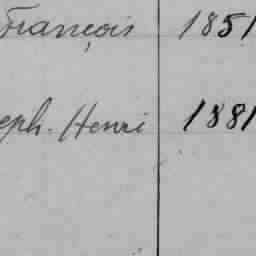 François 1851
eph. Henri 1881